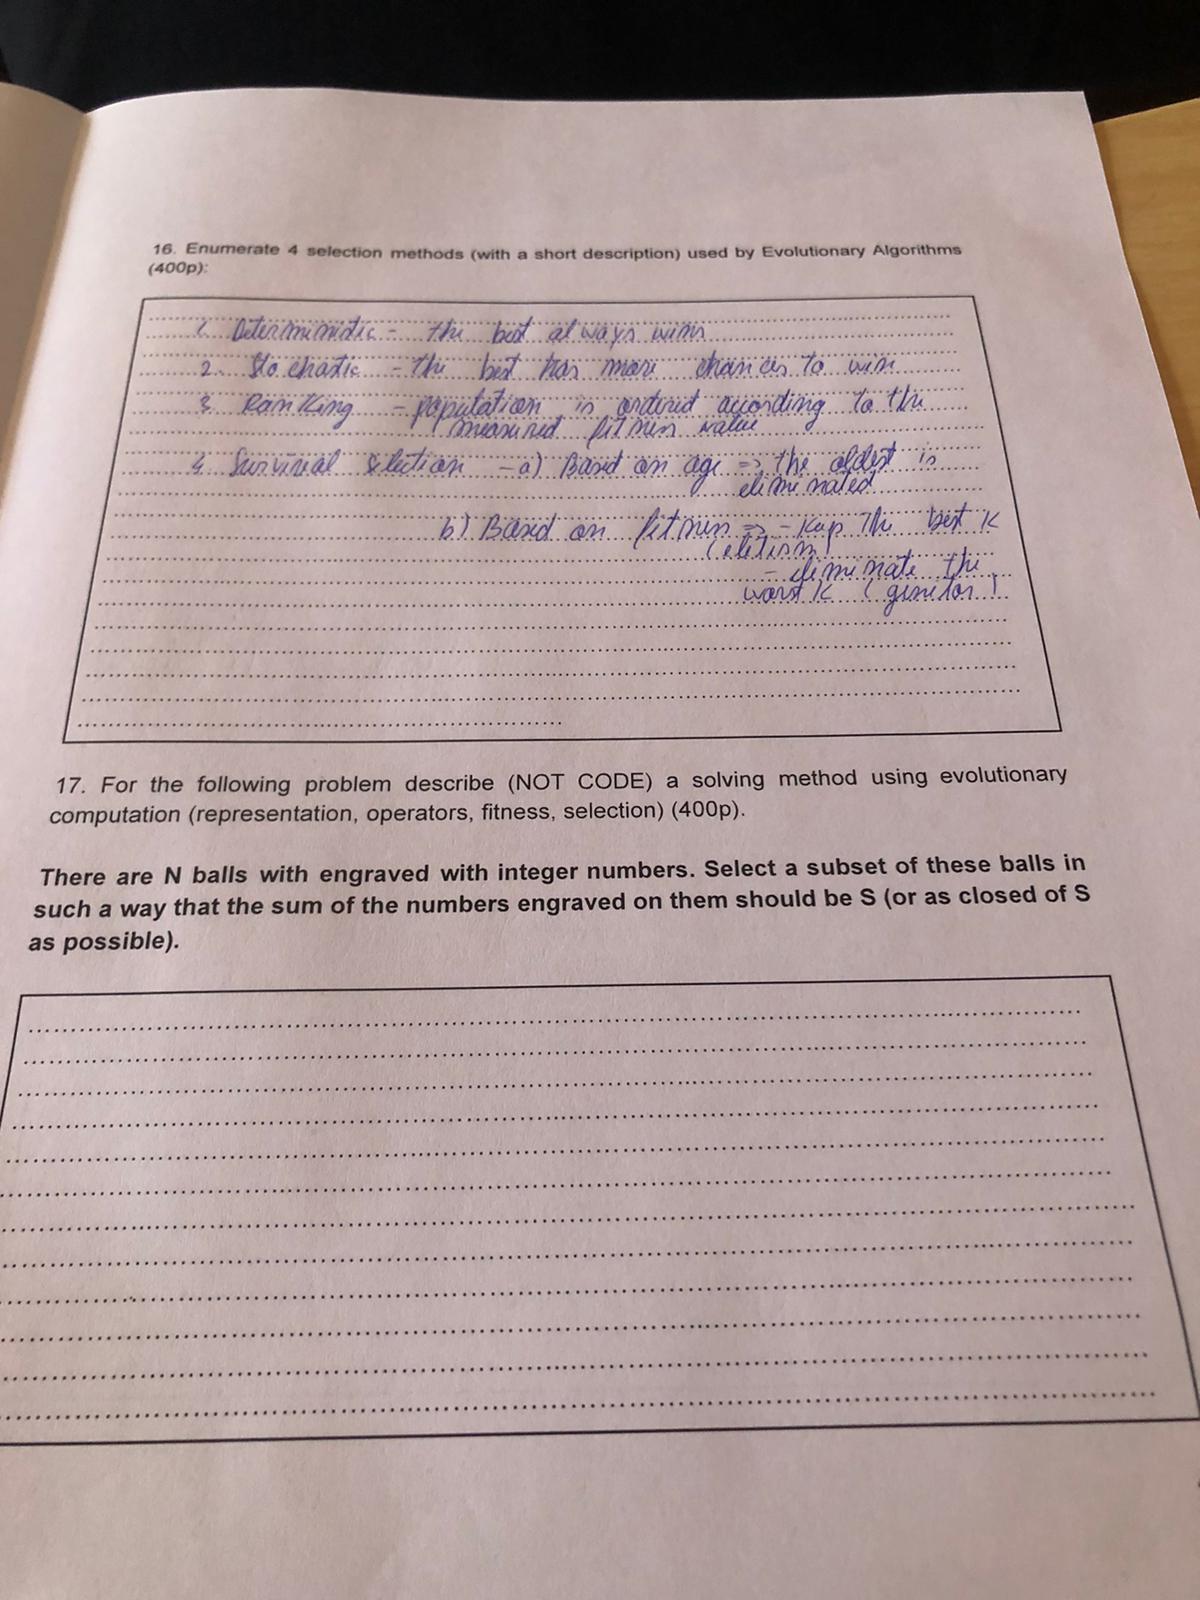 16. Enumerate 4 selection methods (with a short description) used by Evolutionary Algorithms
(400p):
1. Deterministic - the best always wins
2. Stochastic - the best has more chances to win
3. Ranking - population is ordered according to the
measured fitness value
4. Survival selection - a) Based on age => the oldest is
eliminated
b) Based on fitness => - keep the best K
(elitism)
- eliminate the
worst K (genitor)
17. For the following problem describe (NOT CODE) a solving method using evolutionary
computation (representation, operators, fitness, selection) (400p).
There are N balls with engraved with integer numbers. Select a subset of these balls in
such a way that the sum of the numbers engraved on them should be S (or as closed of S
as possible).